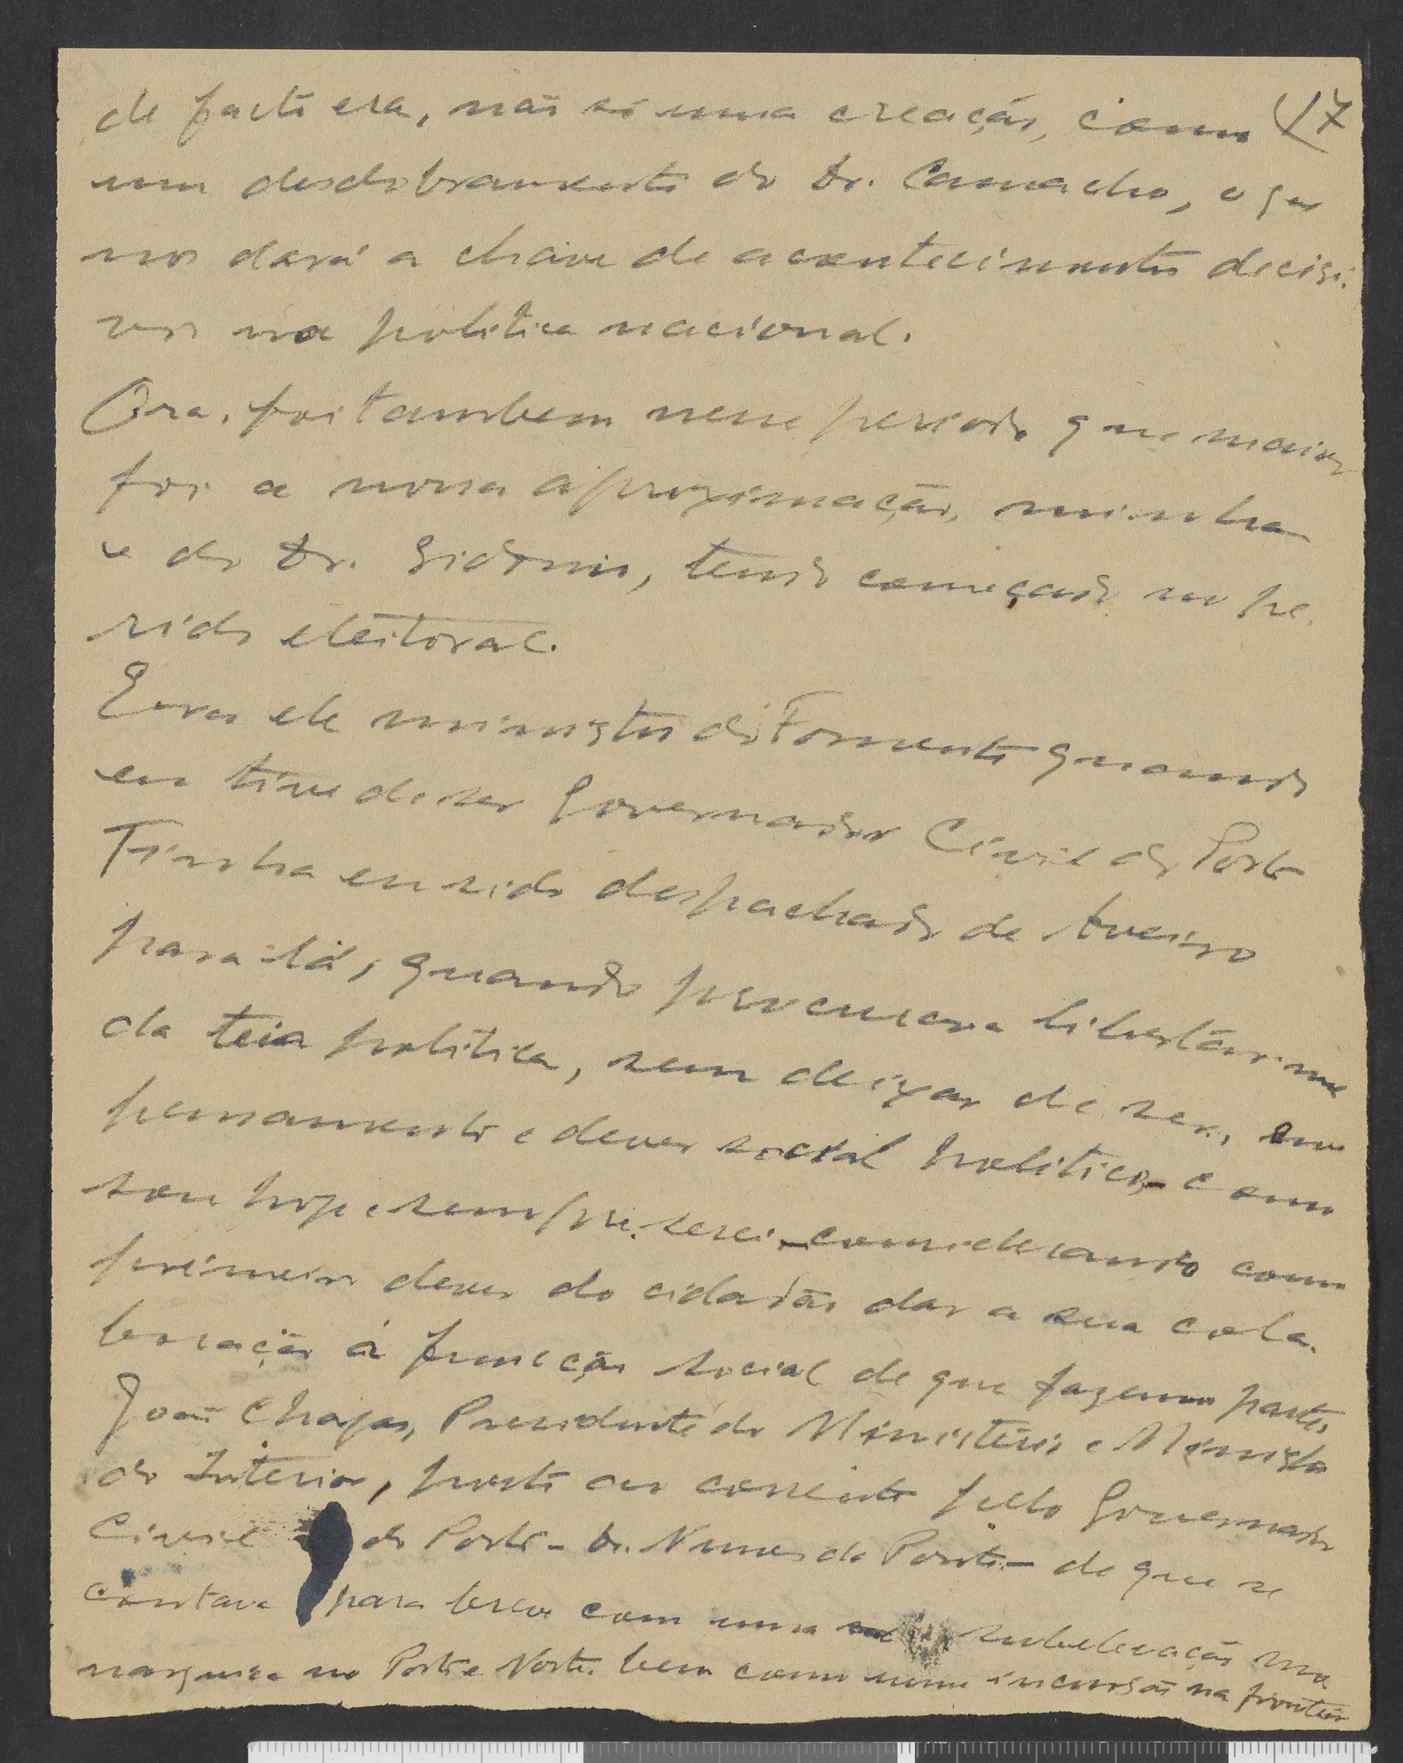 de facto era, não só uma creação, como 17
um desdobramento do Dr. Camacho, o que
nos dará a chave de acontecimentos decisi-
vos na politica nacional.
Ora, foi tambem nesse periodo que maior
foi a nossa aproximação, minha
e do Dr. Sidonio, tendo começado no pe-
riodo eleitoral.
Era ele ministro do Fomento quando
eu tive de ser Governador Civil do Porto
Tinha eu sido despachado de Aveiro
para lá, quando procurava libertar-me
da teia politica, sem deixar de ser, em
pensamento e dever social politico, - como
sou hoje e sempre serei - considerando como
primeiro dever do cidadão dar a sua cola-
boração á funcção social de que fazemos parte.
João Chagas, Presidente do Ministério e Ministro
do Interior, posto ao corrente pelo Governador
Civil do Porto - Dr. Nunes da Ponte - de que se
contava para breve com uma sublevação mo
narquica no Porto e Norte, bem como uma incursão na fronteira